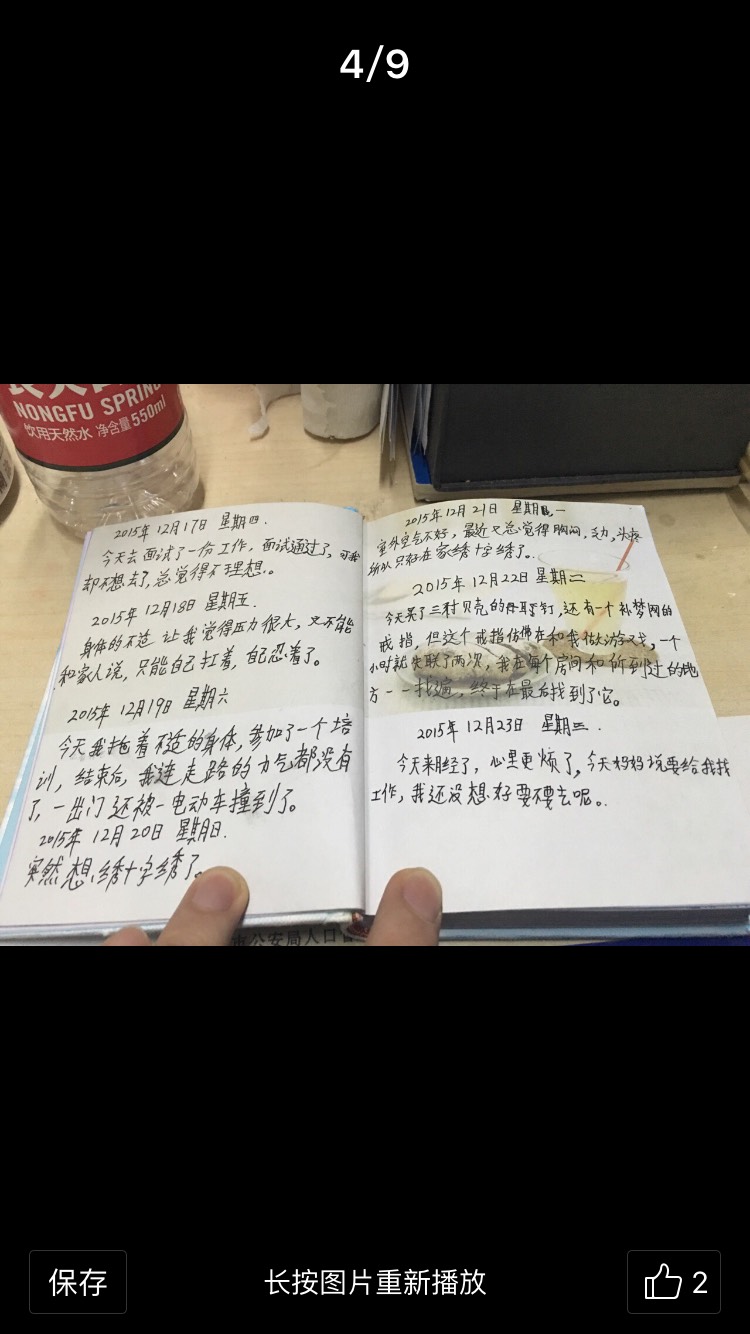 4/9
NONGFU SPRING
饮用天然水 净含量550ml
2015年12月17日 星期四.
今天去面试了一份工作，面试通过了，可我
却不想去了，总觉得不理想。
2015年12月18日 星期五.
身体的不适 让我觉得压力很大，又不能
和家人说，只能自己扛着，自己忍着了。
2015年12月19日 星期六
今天我拖着不适的身体，参加了一个培
训，结束后，我连走路的力气都没有
了，一出门还被一电动车撞到了。
2015年12月20日 星期日.
突然想绣十字绣了。
2015年12月21日 星期一
室外空气不好，最近又总觉得胸闷，乏力，头疼
所以只好在家绣十字绣了。
2015年12月22日 星期二
今天买了三对贝壳的耳钉，还有一个补梦网的
戒指，但这个戒指仿佛在和我做游戏，一个
小时就失联了两次，我在每个房间和所到过的地
方一一找遍，终于在最后找到了它。
2015年12月23日 星期三.
今天来月经了，心里更烦了，今天妈妈说要给我找
工作，我还没想好要不要去呢。
市公安局人口
保存
长按图片重新播放
2